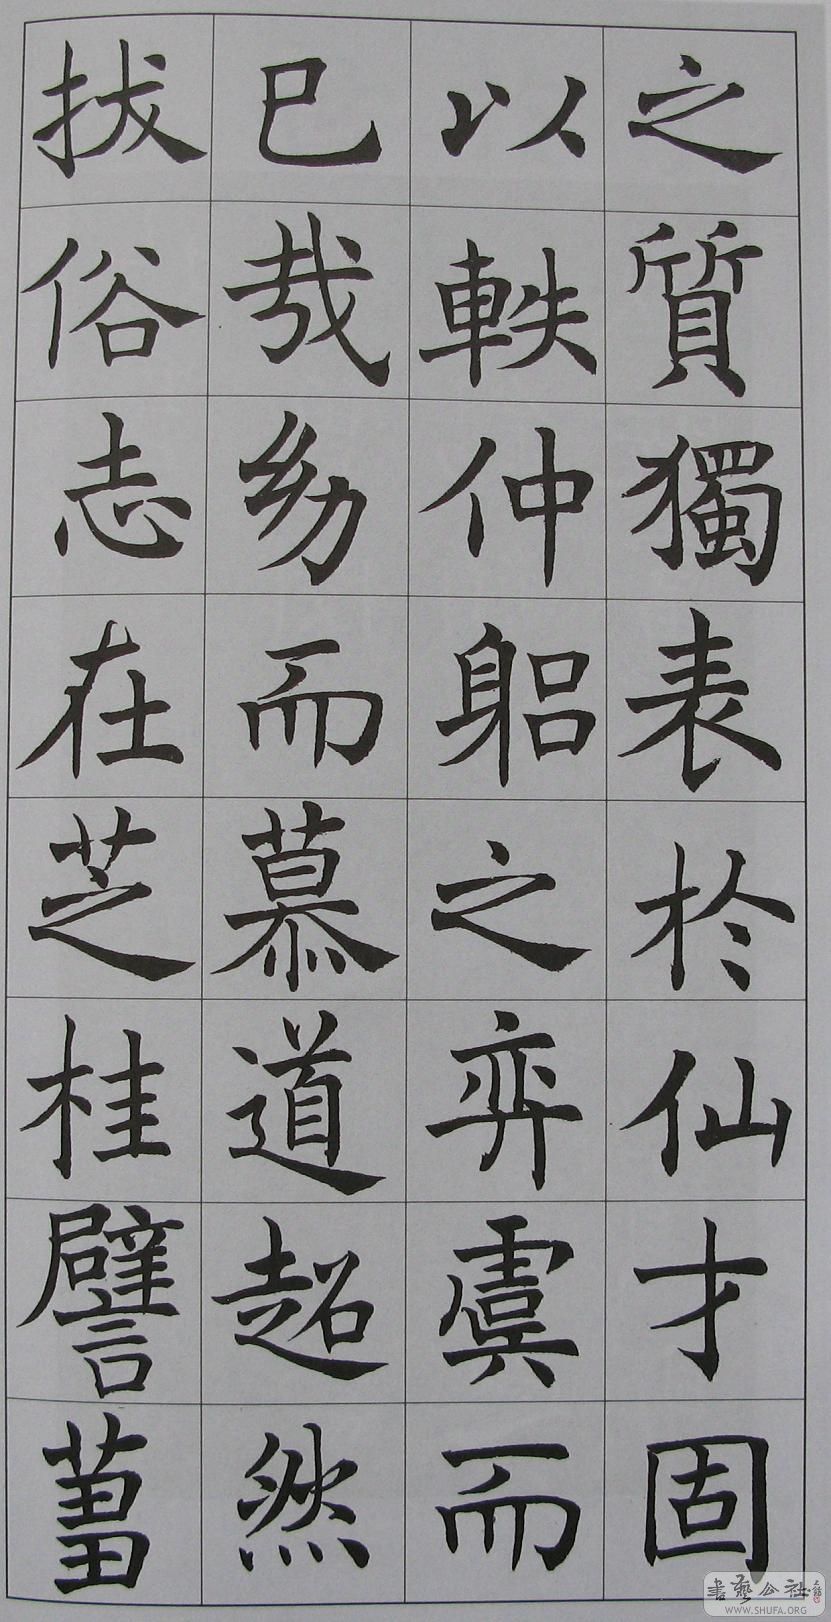 之質獨表於仙才固
以軼仲躳之弈虞而
已哉幼而慕道超然
拔俗志在芝桂譬葍
書藝公社
WWW.SHUFA.ORG